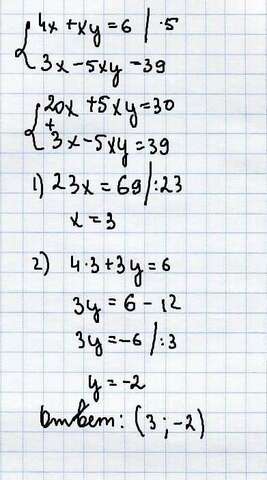 4x + xy = 6 | · 5
3x - 5xy = 39
20x + 5xy = 30
+
3x - 5xy = 39
1) 23x = 69 | : 23
x = 3
2) 4 · 3 + 3y = 6
3y = 6 - 12
3y = -6 | : 3
y = -2
Ответ: (3 ; -2)